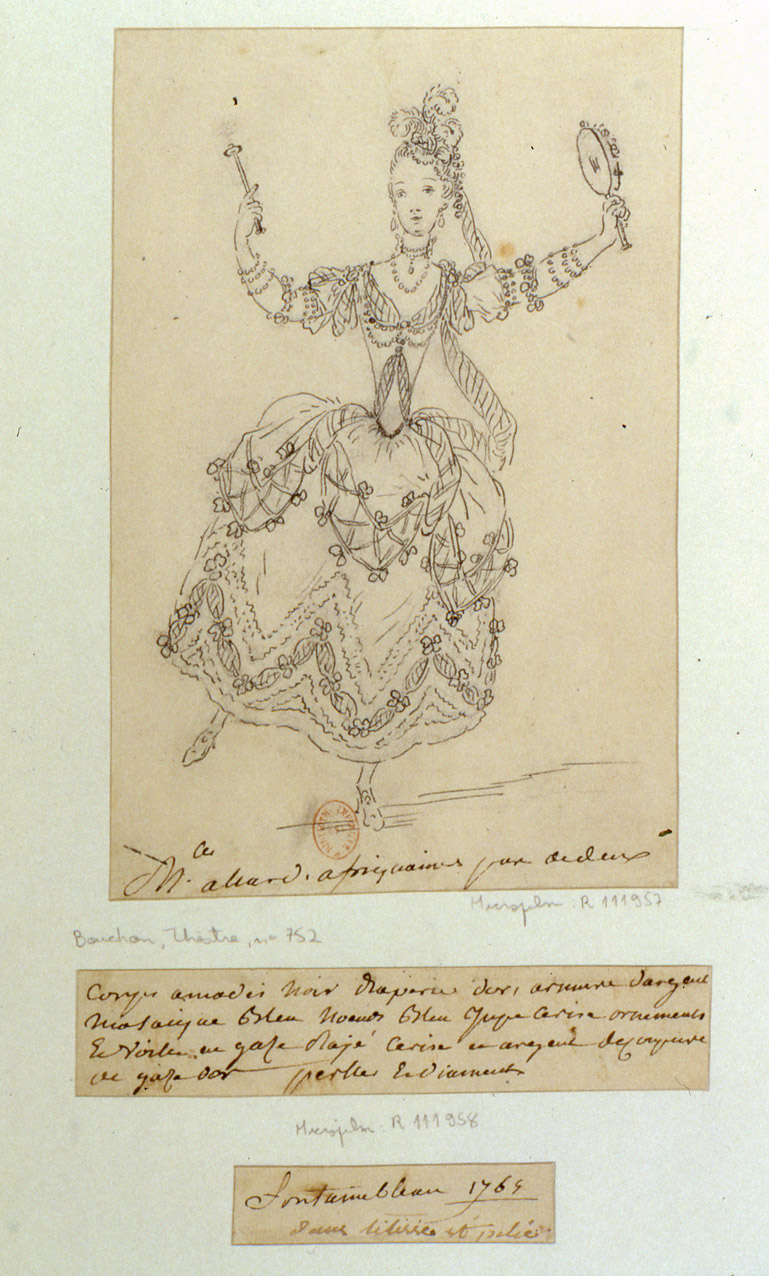 Mlle allard. afriquaine pas de deux
Microfilm. R 111957
Bouchon, Théâtre, no 752
Corps amadis noir draperie dor, armure dargent
mosaique bleu noeuds bleu Jupe cerise ornements
et voile en gaze Rayé cerise en argent decoupure
de gaze dor perlles et diaments
Microfilm. R 111958
fontainebleau 1765
dans silvie